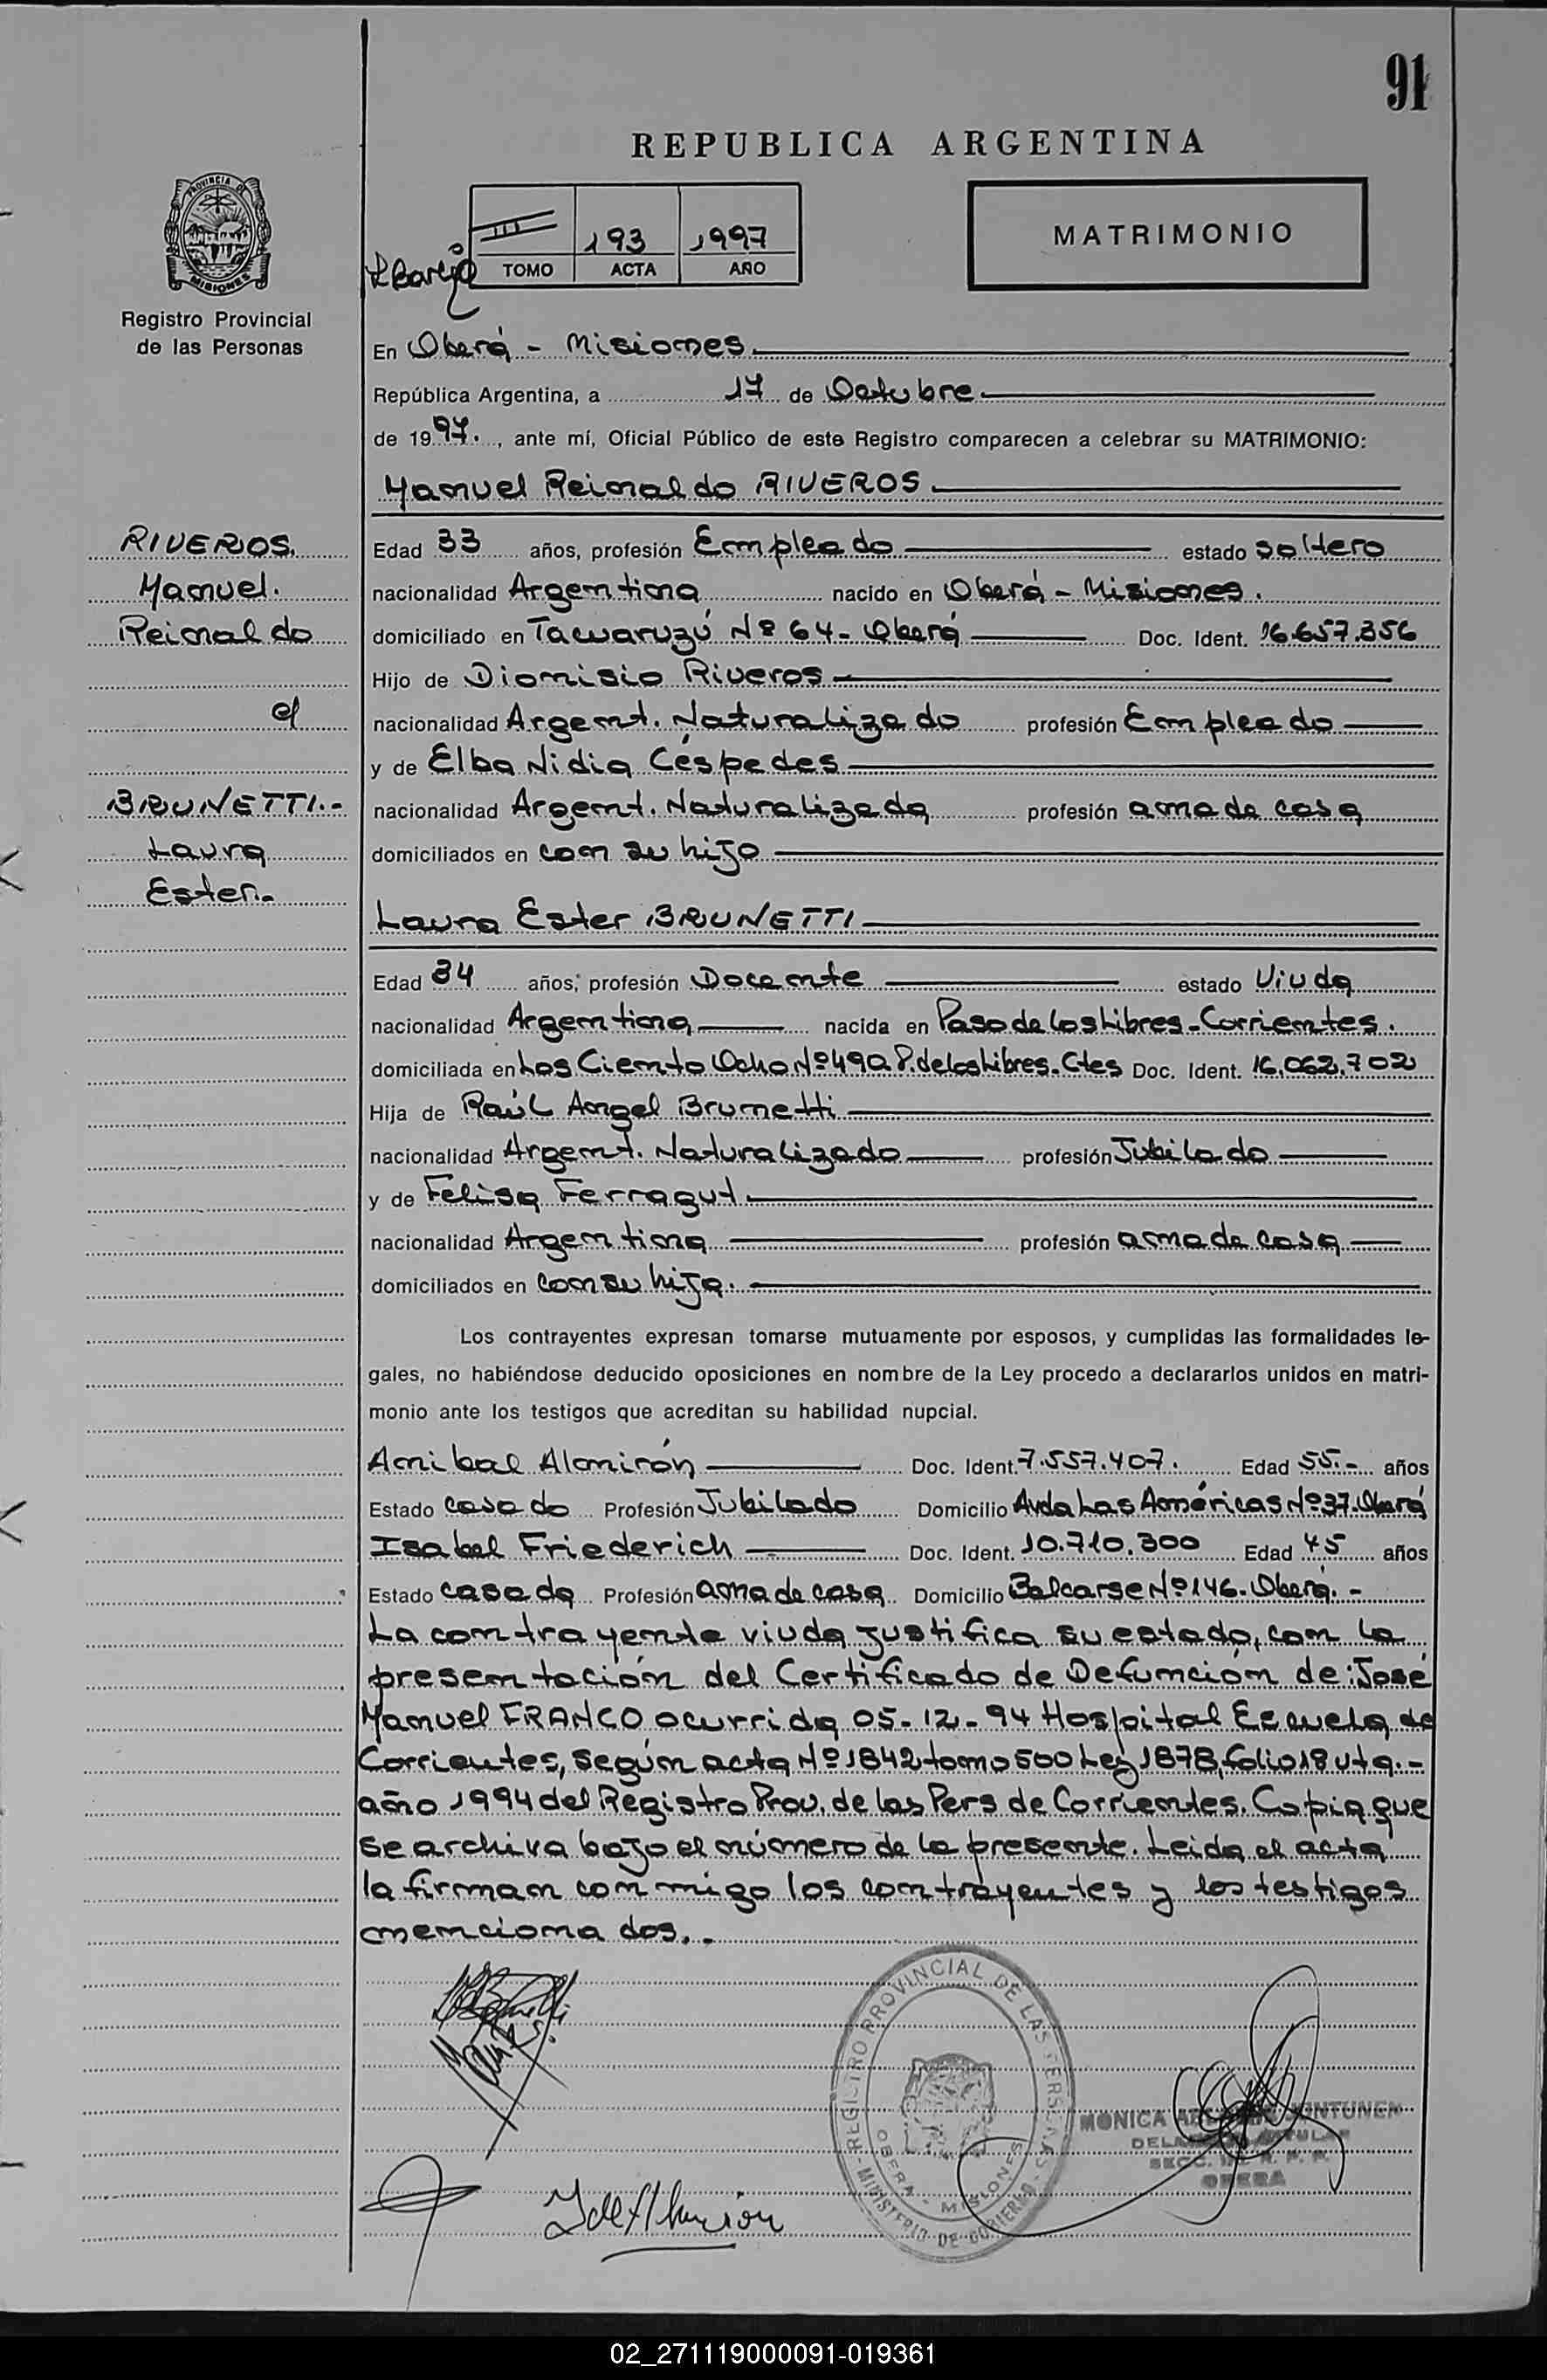 91
REPUBLICA ARGENTINA
PROVINCIA DE
MISIONES
193 1997
TOMO ACTA AÑO
MATRIMONIO
Registro Provincial
de las Personas
En Oberá - Misiones.
República Argentina, a 17 de Octubre
de 1997., ante mí, Oficial Público de este Registro comparecen a celebrar su MATRIMONIO:
Manuel Reinaldo RIVEROS
RIVEROS.
Manuel.
Reinaldo
c/
BRUNETTI.-
Laura
Ester.-
Edad 33 años, profesión Empleado estado soltero
nacionalidad Argentina nacido en Oberá - Misiones.
domiciliado en Tacuaruzú Nº 64 - Oberá Doc. Ident. 16.657.356
Hijo de Dionisio Riveros
nacionalidad Argent. Naturalizado profesión Empleado
y de Elba Nidia Céspedes
nacionalidad Argent. Naturalizada profesión ama de casa
domiciliados en con su hijo
Laura Ester BRUNETTI
Edad 34 años; profesión Docente estado Viuda
nacionalidad Argentina nacida en Paso de los Libres - Corrientes.
domiciliada en Los Ciento Ocho Nº 490 P. de los Libres. Ctes Doc. Ident. 16.062.702
Hija de Raúl Angel Brunetti
nacionalidad Argent. Naturalizado profesión Jubilado
y de Felisa Ferragut
nacionalidad Argentina profesión ama de casa
domiciliados en con su hija.
Los contrayentes expresan tomarse mutuamente por esposos, y cumplidas las formalidades le-
gales, no habiéndose deducido oposiciones en nombre de la Ley procedo a declararlos unidos en matri-
monio ante los testigos que acreditan su habilidad nupcial.
Anibal Almirón Doc. Ident. 7.557.407. Edad 55.- años
Estado casado Profesión Jubilado Domicilio Avda Las Américas Nº 37. Oberá
Isabel Friederich Doc. Ident. 10.710.300 Edad 45 años
Estado casada Profesión ama de casa Domicilio Balcarse Nº 146. Oberá. -
La contrayente viuda justifica su estado, con la
presentación del Certificado de Defunción de: José
Manuel FRANCO ocurrida 05-12-94 Hospital Escuela de
Corrientes, según acta Nº 1842 tomo 500 Leg 1878, folio 18 vta.-
año 1994 del Registro Prov. de las Pers de Corrientes. Copia que
se archiva bajo el número de la presente. Leida el acta
la firman conmigo los contrayentes y los testigos
mencionados..
REGISTRO PROVINCIAL DE LAS PERSONAS
MINISTERIO DE GOBIERNO
OBERA - MISIONES
MONICA
OBERA
02_271119000091-019361